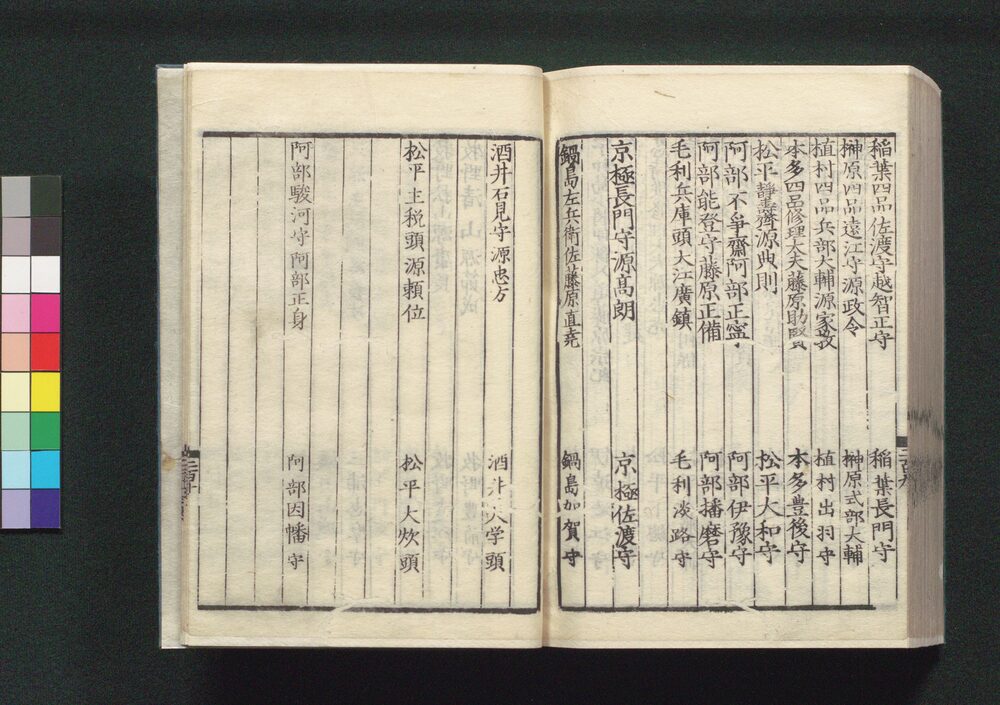 稲葉四品佐渡守越智正守 稲葉長門守
榊原四品遠江守源政令 榊原式部大輔
植村四品兵部大輔源家教 植村出羽守
本多四品修理大夫藤原助賢 本多豊後守
松平静寿斎源典則 松平大和守
阿部不争齋阿部正寧 阿部伊豫守
阿部能登守藤原正備 阿部播磨守
毛利兵庫頭大江廣鎮 毛利淡路守
京極長門守源高朗 京極佐渡守
鍋島左兵衛佐藤原直堯 鍋島加賀守
酒井石見守源忠方 酒井大学頭
松平主税頭源頼位 松平大炊頭
阿部駿河守阿部正身 阿部因幡守
二百九
二百十